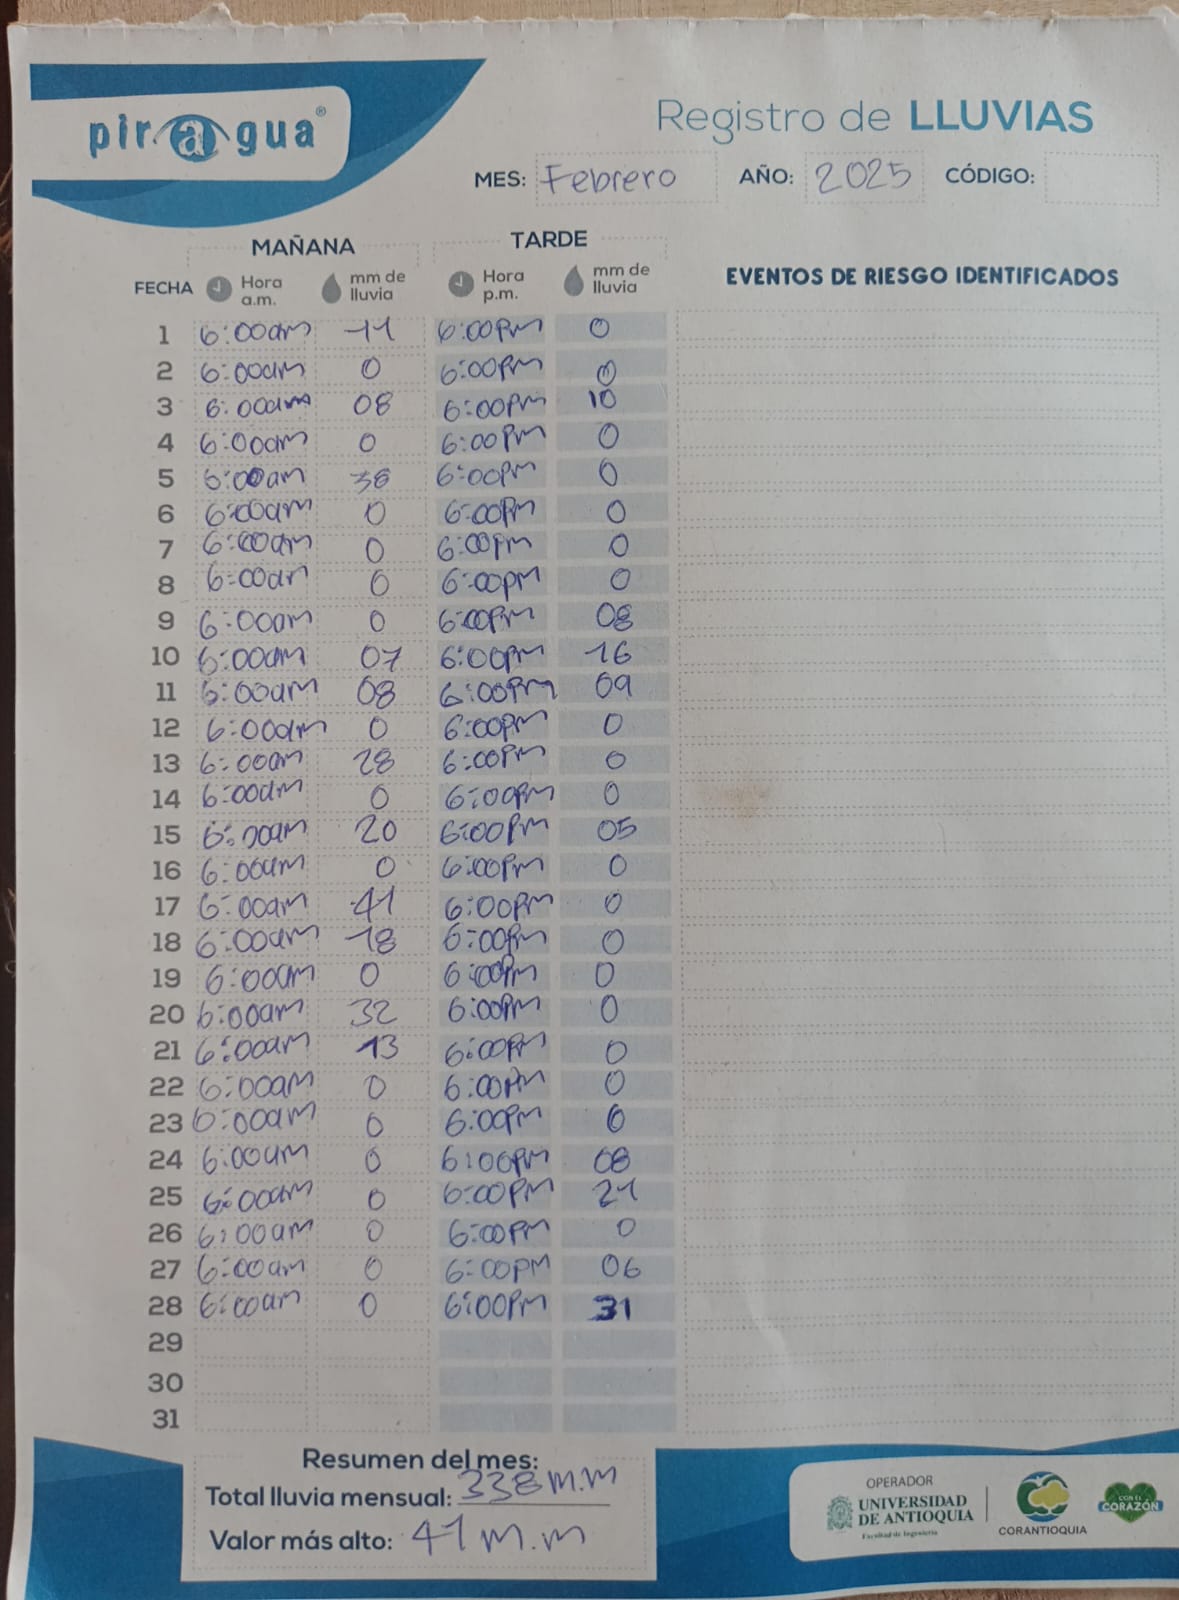 piragua®
Registro de LLUVIAS
MES: Febrero AÑO: 2025 CÓDIGO:
MAÑANA TARDE
FECHA Hora a.m. mm de lluvia Hora p.m. mm de lluvia EVENTOS DE RIESGO IDENTIFICADOS
1 6:00am 11 6:00PM 0
2 6:00am 0 6:00PM 0
3 6:00am 08 6:00PM 10
4 6:00am 0 6:00PM 0
5 6:00am 38 6:00PM 0
6 6:00am 0 6:00PM 0
7 6:00am 0 6:00PM 0
8 6:00am 0 6:00PM 0
9 6:00am 0 6:00PM 08
10 6:00am 07 6:00PM 16
11 6:00am 08 6:00PM 09
12 6:00am 0 6:00PM 0
13 6:00am 28 6:00PM 0
14 6:00am 0 6:00PM 0
15 6:00am 20 6:00PM 05
16 6:00am 0 6:00PM 0
17 6:00am 41 6:00PM 0
18 6:00am 18 6:00PM 0
19 6:00am 0 6:00PM 0
20 6:00am 32 6:00PM 0
21 6:00am 13 6:00PM 0
22 6:00am 0 6:00PM 0
23 6:00am 0 6:00PM 0
24 6:00am 0 6:00PM 08
25 6:00am 0 6:00PM 21
26 6:00am 0 6:00PM 0
27 6:00am 0 6:00PM 06
28 6:00am 0 6:00PM 31
29
30
31
Resumen del mes:
Total lluvia mensual: 338 m.m
Valor más alto: 41 m.m
OPERADOR
UNIVERSIDAD
DE ANTIOQUIA
Facultad de Ingeniería
CORANTIOQUIA
CON EL
CORAZÓN